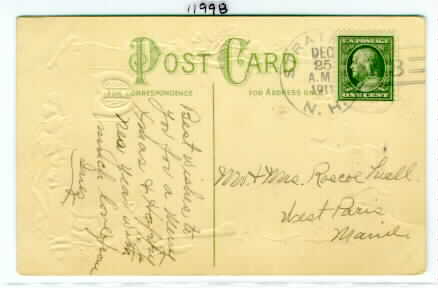 11998
POST CARD
FOR CORRESPONDENCE
FOR ADDRESS ONLY
DEC
25
A.M.
1911
N. H.
U.S. POSTAGE
ONE CENT
Best wishes to
you for a Merry
Xmas & Happy
New Year with
much love from
Mr. & Mrs. Roscoe
West Paris
Maine